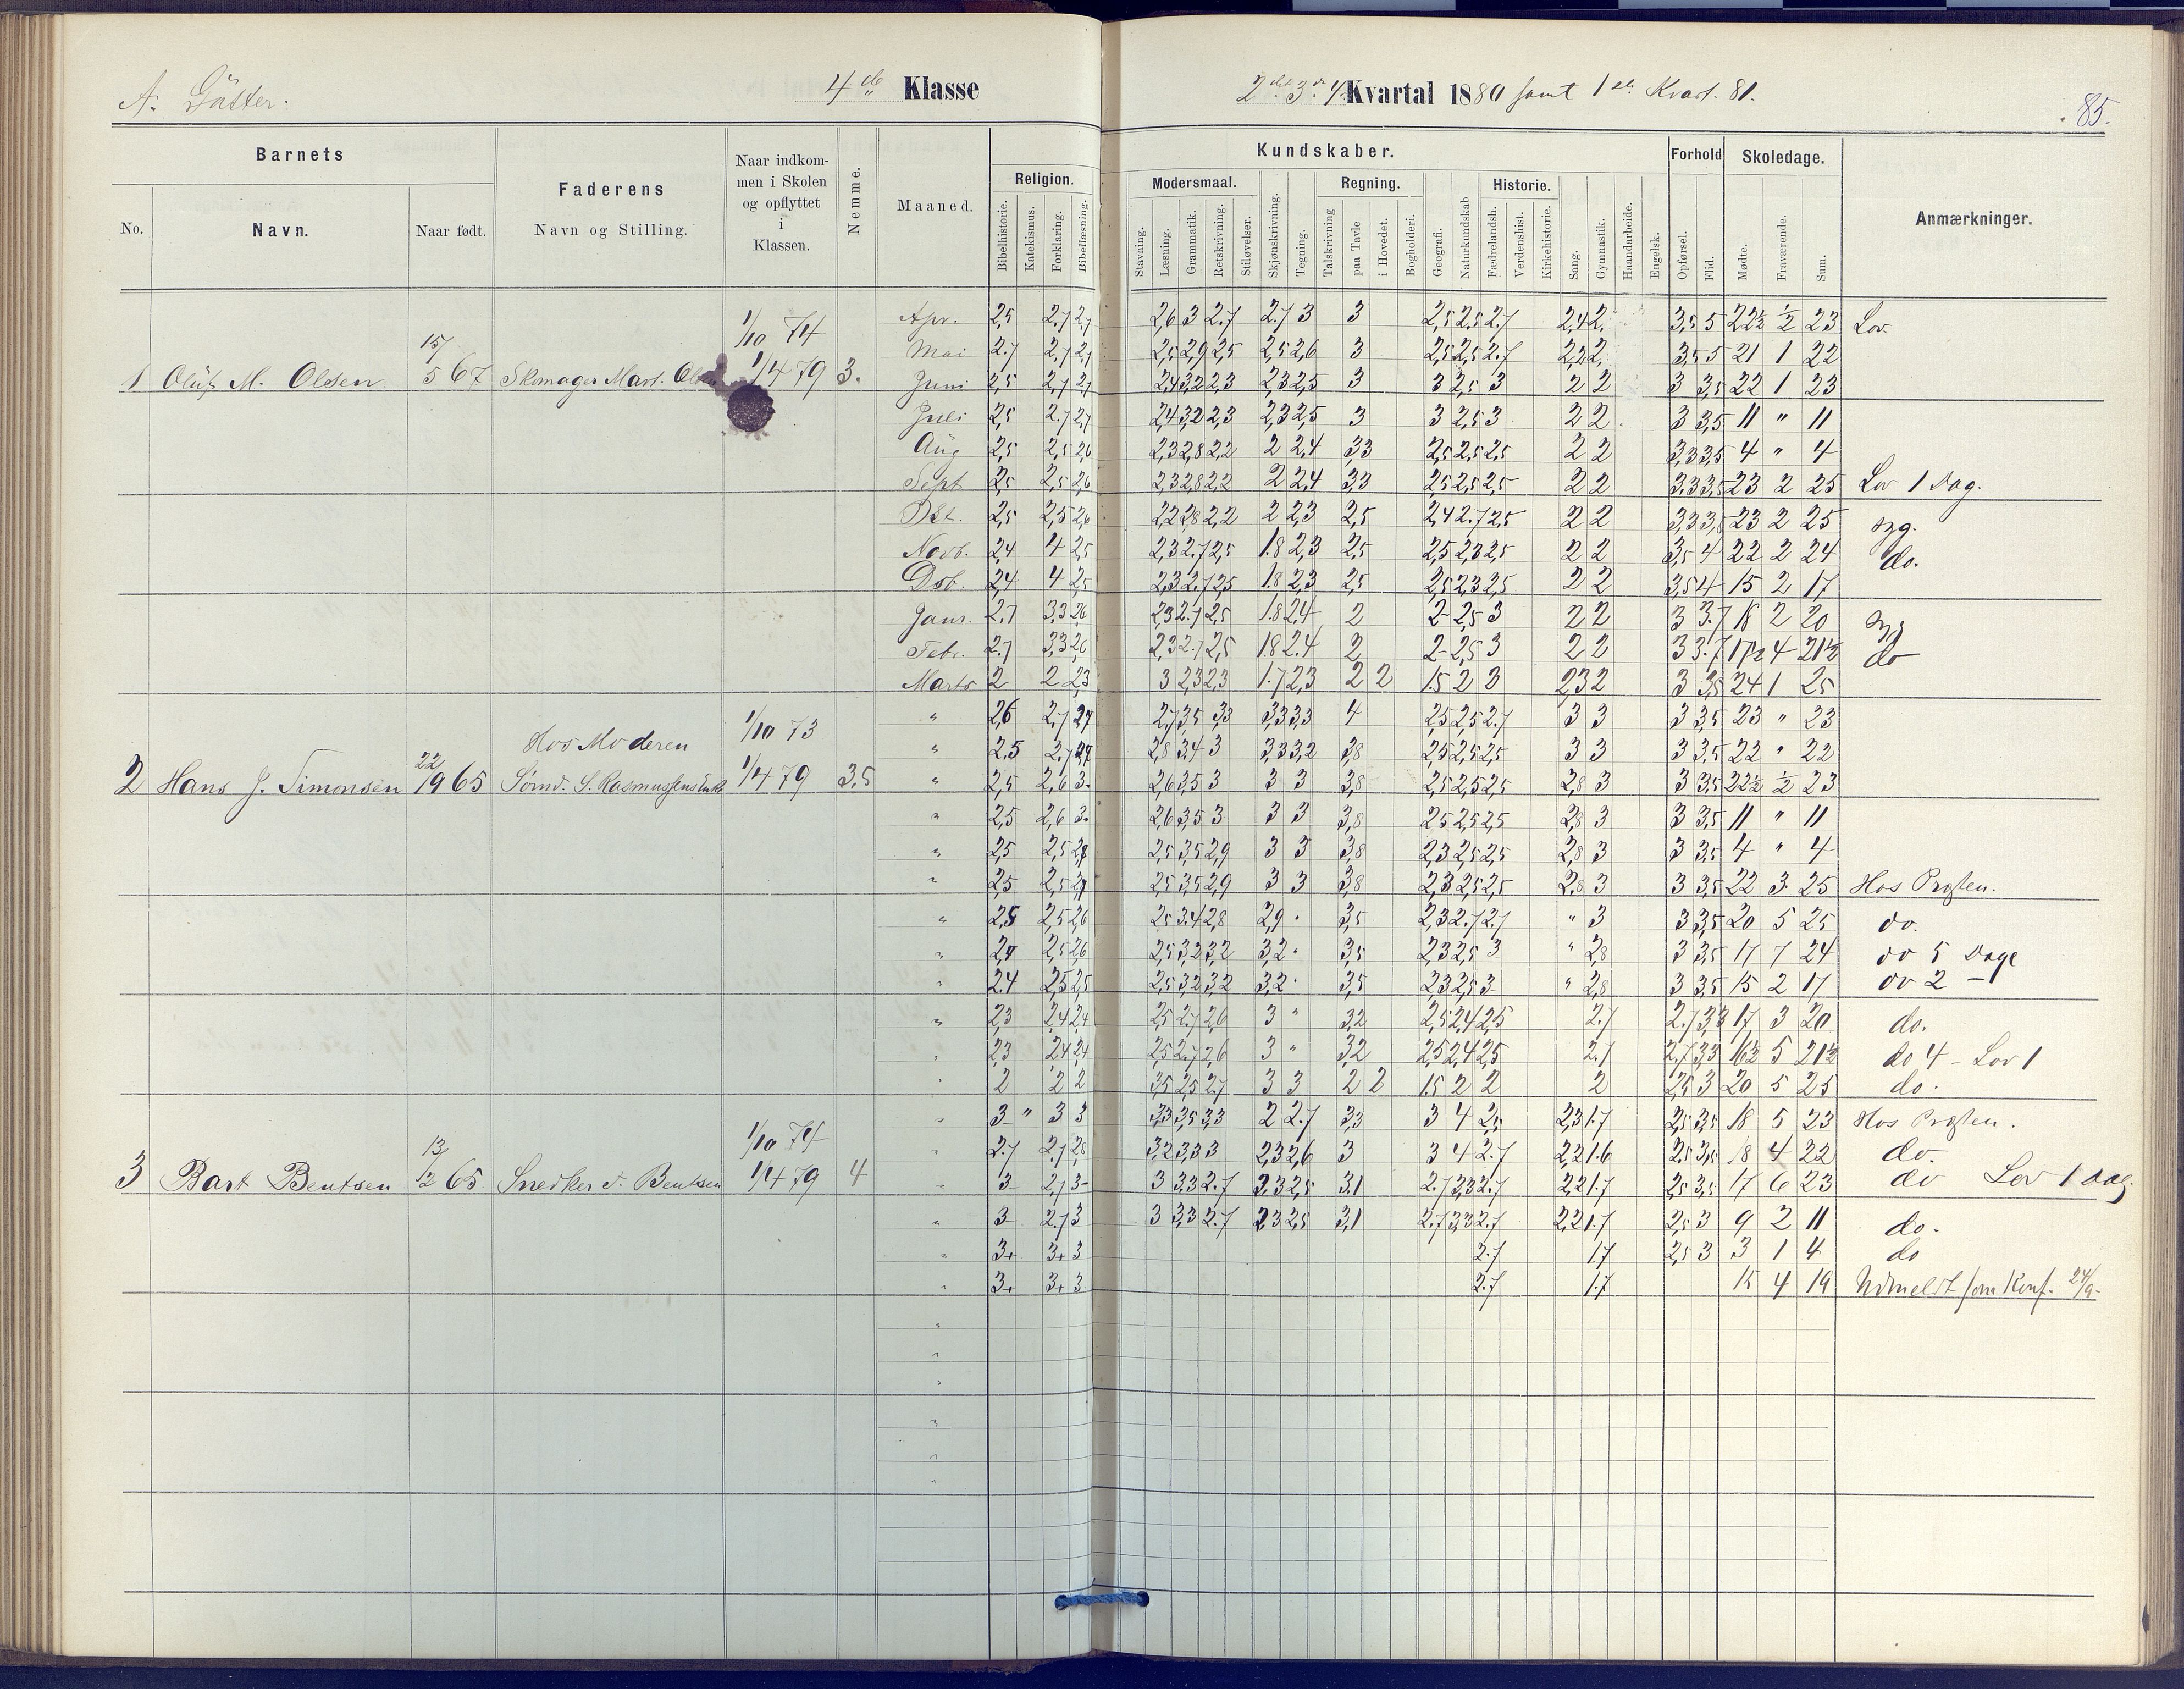 A. Gutter. 4de Klasse 2det 3die 4 Kvartal 1880 samt 1ste Kvart. 81. 85.
Barnets Faderens Naar indkom- Nemme. Maaned. Kundskaber. Forhold Skoledage. Anmærkninger.
men i Skolen Religion. Modersmaal. Regning. Historie.
og opflyttet
No. Navn. Naar født. Navn og Stilling. i
Klassen.
Bibelhistorie. Katekismus. Forklaring. Bibellæsning. Stavning. Læsning. Grammatik. Retskrivning. Stiløvelser. Skjønskrivning. Tegning. Talskrivning paa Tavle i Hovedet. Bogholderi. Geografi. Naturkundskab Fædrelandsh. Verdenshist. Kirkehistorie. Sang. Gymnastik. Haandarbeide. Engelsk. Opførsel. Flid. Mødte. Fraværende. Sum.
1/10 74 Apr. 2,5 2,7 2,7 2,6 3 2.7 2.7 3 3 2,5 2,5 2.7 2,4 2. 3,5 5 22½ ½ 23 Lov.
15/5 67 Mai 2.7 2,7 2,7 2,5 2,9 2,5 2,5 2,6 3 2,5 2,5 2.7 2,2 2. 3,5 5 21 1 22
1 Oluf M. Olsen Skomager Mart. Olsen 1/4 79 3. Juni 2,5 2,7 2,7 2,4 3,2 2,3 2,3 2,5 3 3 2,5 3 2 2 3 3,5 22 1 23
Juli 2,5 2.7 2,7 2,4 3,2 2,3 2,3 2,5 3 3 2,5 3 2 2 3 3,5 11 " 11
Aug 2,5 2,5 2,6 2,3 2,8 2,2 2 2,4 3,3 2,5 2,5 2,5 2 2 3,3 3,5 4 " 4
Sept 2,5 2,5 2,6 2,3 2,8 2,2 2 2,4 3,3 2,5 2,5 2,5 2 2 3,3 3,5 23 2 25 Lov 1 Dag.
Okt. 2,5 2,5 2,6 2,2 2,8 2,2 2 2,3 2,5 2,4 2.7 2,5 2 2 3,3 3,5 23 2 25 syg.
Novb. 2,4 4 2,5 2,3 2.7 2,5 1.8 2,3 2,5 2,5 2,3 2,5 2 2 3,5 4 22 2 24 do.
Dsb. 2,4 4 2,5 2,3 2.7 2,5 1.8 2,3 2,5 2,5 2,3 2,5 2 2 3,5 4 15 2 17
Janr. 2.7 3,3 2,6 2,3 2.7 2,5 1.8 2,4 2 2- 2,5 3 2 2 3 3.7 18 2 20 syg
Febr. 2.7 3,3 2,6 2,3 2.7 2,5 1.8 2.4 2 2- 2,5 3 2 2 3 3.7 17½ 4 21½ do
Marts 2 2 2,3 3 2,3 2,3 1.7 2,3 2 2 1.5 2 3 2,3 2 3 3,5 24 1 25
1/10 73 " 2,6 2,7 2,7 2,7 3,5 3,3 3,3 3,3 4 2,5 2,5 2.7 3 3 3 3,5 23 " 23
Hos Moderen " 2.5 2.7 2,7 2,8 3.4 3 3,3 3,2 3,8 2,5 2,5 2,5 3 3 3 3,5 22 " 22
2 Hans J. Simonsen 22/9 65 Sømd. S. Rasmussens Enke 1/4 79 3,5 " 2,5 2,6 3. 2,6 3,5 3 3 3 3,8 2,5 2,5 2,5 2,8 3 3 3,5 22½ ½ 23
" 2,5 2,6 3. 2,6 3,5 3 3 3 3,8 2,5 2,5 2,5 2,8 3 3 3,5 11 " 11
" 2,5 2,5 2,7 2,5 3,5 2,9 3 3 3,8 2,3 2,5 2,5 2,8 3 3 3,5 4 " 4
" 2,5 2,5 2,7 2,5 3,5 2,9 3 3 3,8 2,3 2,5 2,5 2,8 3 3 3,5 22 3 25 Hos Presten.
" 2,5 2,5 2,6 2,5 3.4 2,8 2,9 . 3,5 2,3 2.7 2.7 " 3 3 3,5 20 5 25 do.
" 2,4 2,5 2,6 2,5 3,2 3,2 3,2 . 3,5 2,3 2,5 3 " 2,8 3 3,5 17 7 24 do 5 Dage
" 2.4 2,5 2,5 2,5 3,2 3,2 3,2 . 3,5 2,3 2,5 3 " 2,8 3 3,5 15 2 17 do 2 —
" 2,3 2,4 2,4 2,5 2,7 2,6 3 " 3,2 2,5 2,4 2,5 2.7 2.7 3,3 17 3 20 do.
" 2,3 2,4 2,4 2,5 2,7 2,6 3 " 3,2 2,5 2,4 2,5 2.7 2.7 3,3 16½ 5 21½ do 4 - Lov 1
" 2 2 2 3,5 2,5 2,7 3 3 2 2 1.5 2 2 2 2,5 3 20 5 25 do.
" 3 " 3 3 3,3 3,5 3,3 2 2.7 3,3 3 4 2,5 2,3 1.7 2,5 3,5 18 5 23 Hos Presten.
1/10 74 " 2.7 2,7 2,8 3,2 3,3 3 2,3 2,6 3 3 4 2.7 2,2 1.6 2,5 3,5 18 4 22 do.
3 Bart Bentsen 13/12 65 Snedker J. Bentsen 1/4 79 4 " 3- 2,7 3- 3 3,3 2.7 2,3 2,5 3,1 2.7 3,3 2.7 2,2 1.7 2,5 3,5 17 6 23 do Lov 1 Dag
" 3- 2,7 3 3 3,3 2.7 2,3 2,5 3,1 2.7 3,3 2.7 2,2 1.7 2,5 3 9 2 11 do.
" 3+ 3+ 3 2.7 1.7 2,5 3 3 1 4 do
" 3+ 3+ 3 2.7 1.7 15 4 19 Udmeldt som Konf. 24/9.
"
"
"
"
"
"